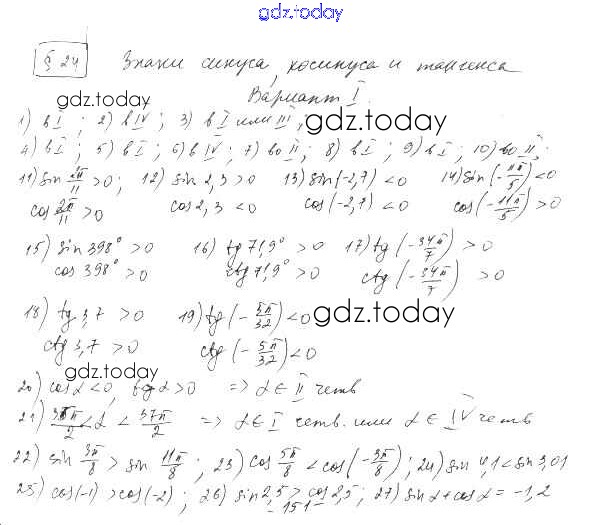 gdz.today
§ 24 Знаки синуса, косинуса и тангенса
gdz.today Вариант I.
1) в I ; 2) в IV ; 3) в I или III, gdz.today
4) в I ; 5) в I ; 6) в IV ; 7) во II ; 8) в I ; 9) в I ; 10) во II ;
11) sin 2π/11 > 0 ; 12) sin 2,3 > 0 13) sin(-2,7) < 0 14) sin(-11π/5) < 0
cos 2π/11 > 0 cos 2,3 < 0 cos(-2,7) < 0 cos(-11π/5) > 0
15) sin 398° > 0 16) tg 71,9° > 0 17) tg(-34π/7) > 0
cos 398° > 0 ctg 71,9° > 0 ctg(-34π/7) > 0
gdz.today
18) tg 3,7 > 0 19) tg(-5π/32) < 0 gdz.today
ctg 3,7 > 0 ctg(-5π/32) < 0
gdz.today
20) cos α < 0, tg α > 0 => α ∈ II четв
21) < α < 37π/2 => α ∈ I четв. или α ∈ IV четв
22) sin 3π/8 > sin 11π/8 ; 23) cos 5π/8 < cos(-3π/8) ; 24) sin 4,1 < sin 3,01
25) cos(-1) > cos(-2) ; 26) sin 2,5 > cos 2,5 ; 27) sin α + cos α = -1,2
-151-
gdz.today